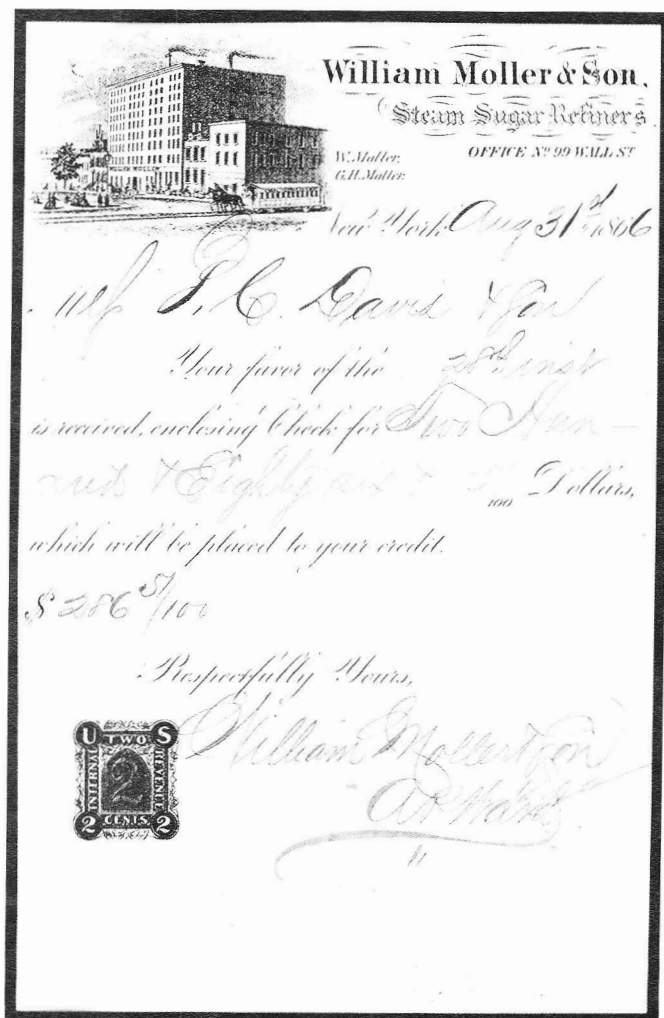 William Moller & Son,
Steam Sugar Refiners
OFFICE No 99 WALL ST
W. Moller,
G.H. Moller
WILLIAM MOLLER
New York Aug 31st 1866
P. C. Davis & Son
Your favor of the 28th inst
is received, enclosing Check for Two Hun-
dred & Eighty six & 100 Dollars,
which will be placed to your credit.
$ 286 51/100
Respectfully Yours,
William Moller & Son
U S
TWO
INTERNAL REVENUE
2
CENTS
2 2